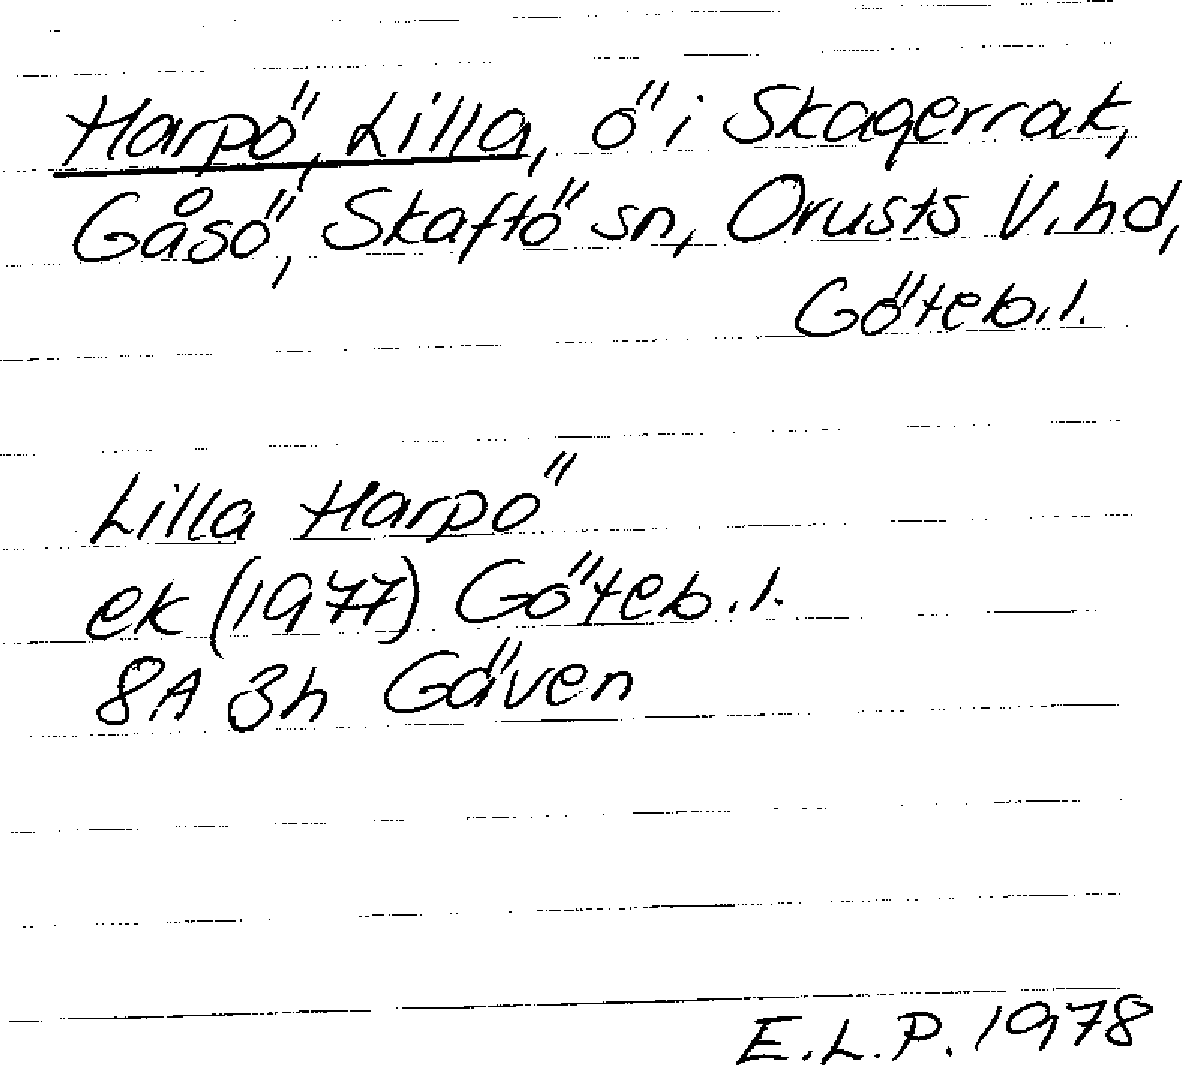 Harpö, Lilla, ö i Skagerrak,
Gåsö, Skaftö sn, Orusts V. hd,
Göteb. l.
Lilla Harpö
ek (1977) Göteb. l.
8A 3h Gäven
E.L.P. 1978